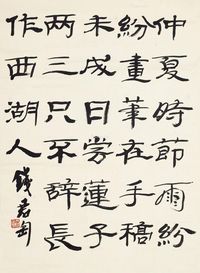 仲夏時節雨紛
紛畫筆在手稿
未成日嘗蓮子
两三只不辭長
作西湖人
錢君匋